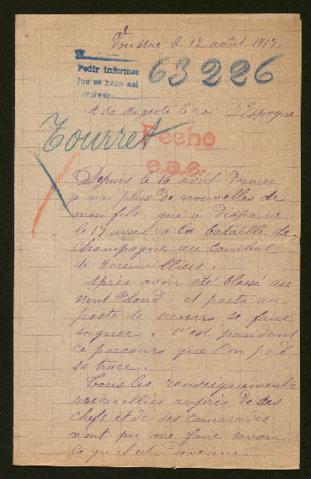 Toussac le 12 août 1917
Pedir informes
63226
A Sa Majesté le roi d'Espagne
Tourret
Hecho
Depuis le 16 avril dernier
je n'ai plus de nouvelles de
mon fils, qui a disparu
le 17 avril a la bataille de
Champagne au combat
de
Après avoir été blessé au
mont Blond, et parti au
poste de secours se faire
soigner, c'est pendant
ce parcours que l'on perd
sa trace.
Tous les renseignements
recueillis auprès de ses
chefs et de ses camarades
n'ont pu me faire savoir
ce qu'il est devenu